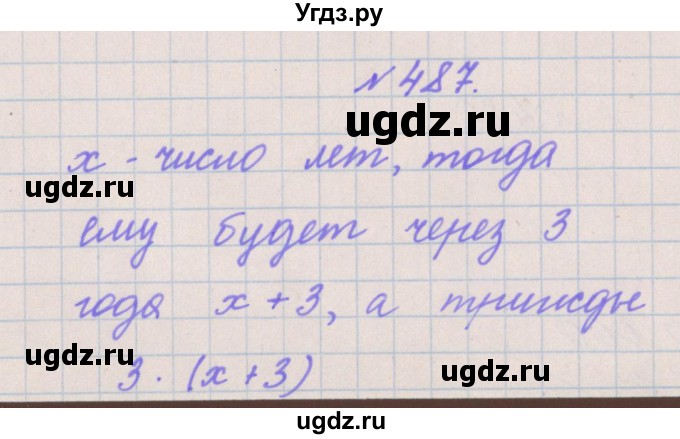 Угдз.ру
№487.
ugdz.ru
х - число лет, тогда
ugdz.ru
ему будет через 3
года х + 3, а трижды
ugdz.ru
3 · (х + 3)
ugdz.ru
ugdz.ru